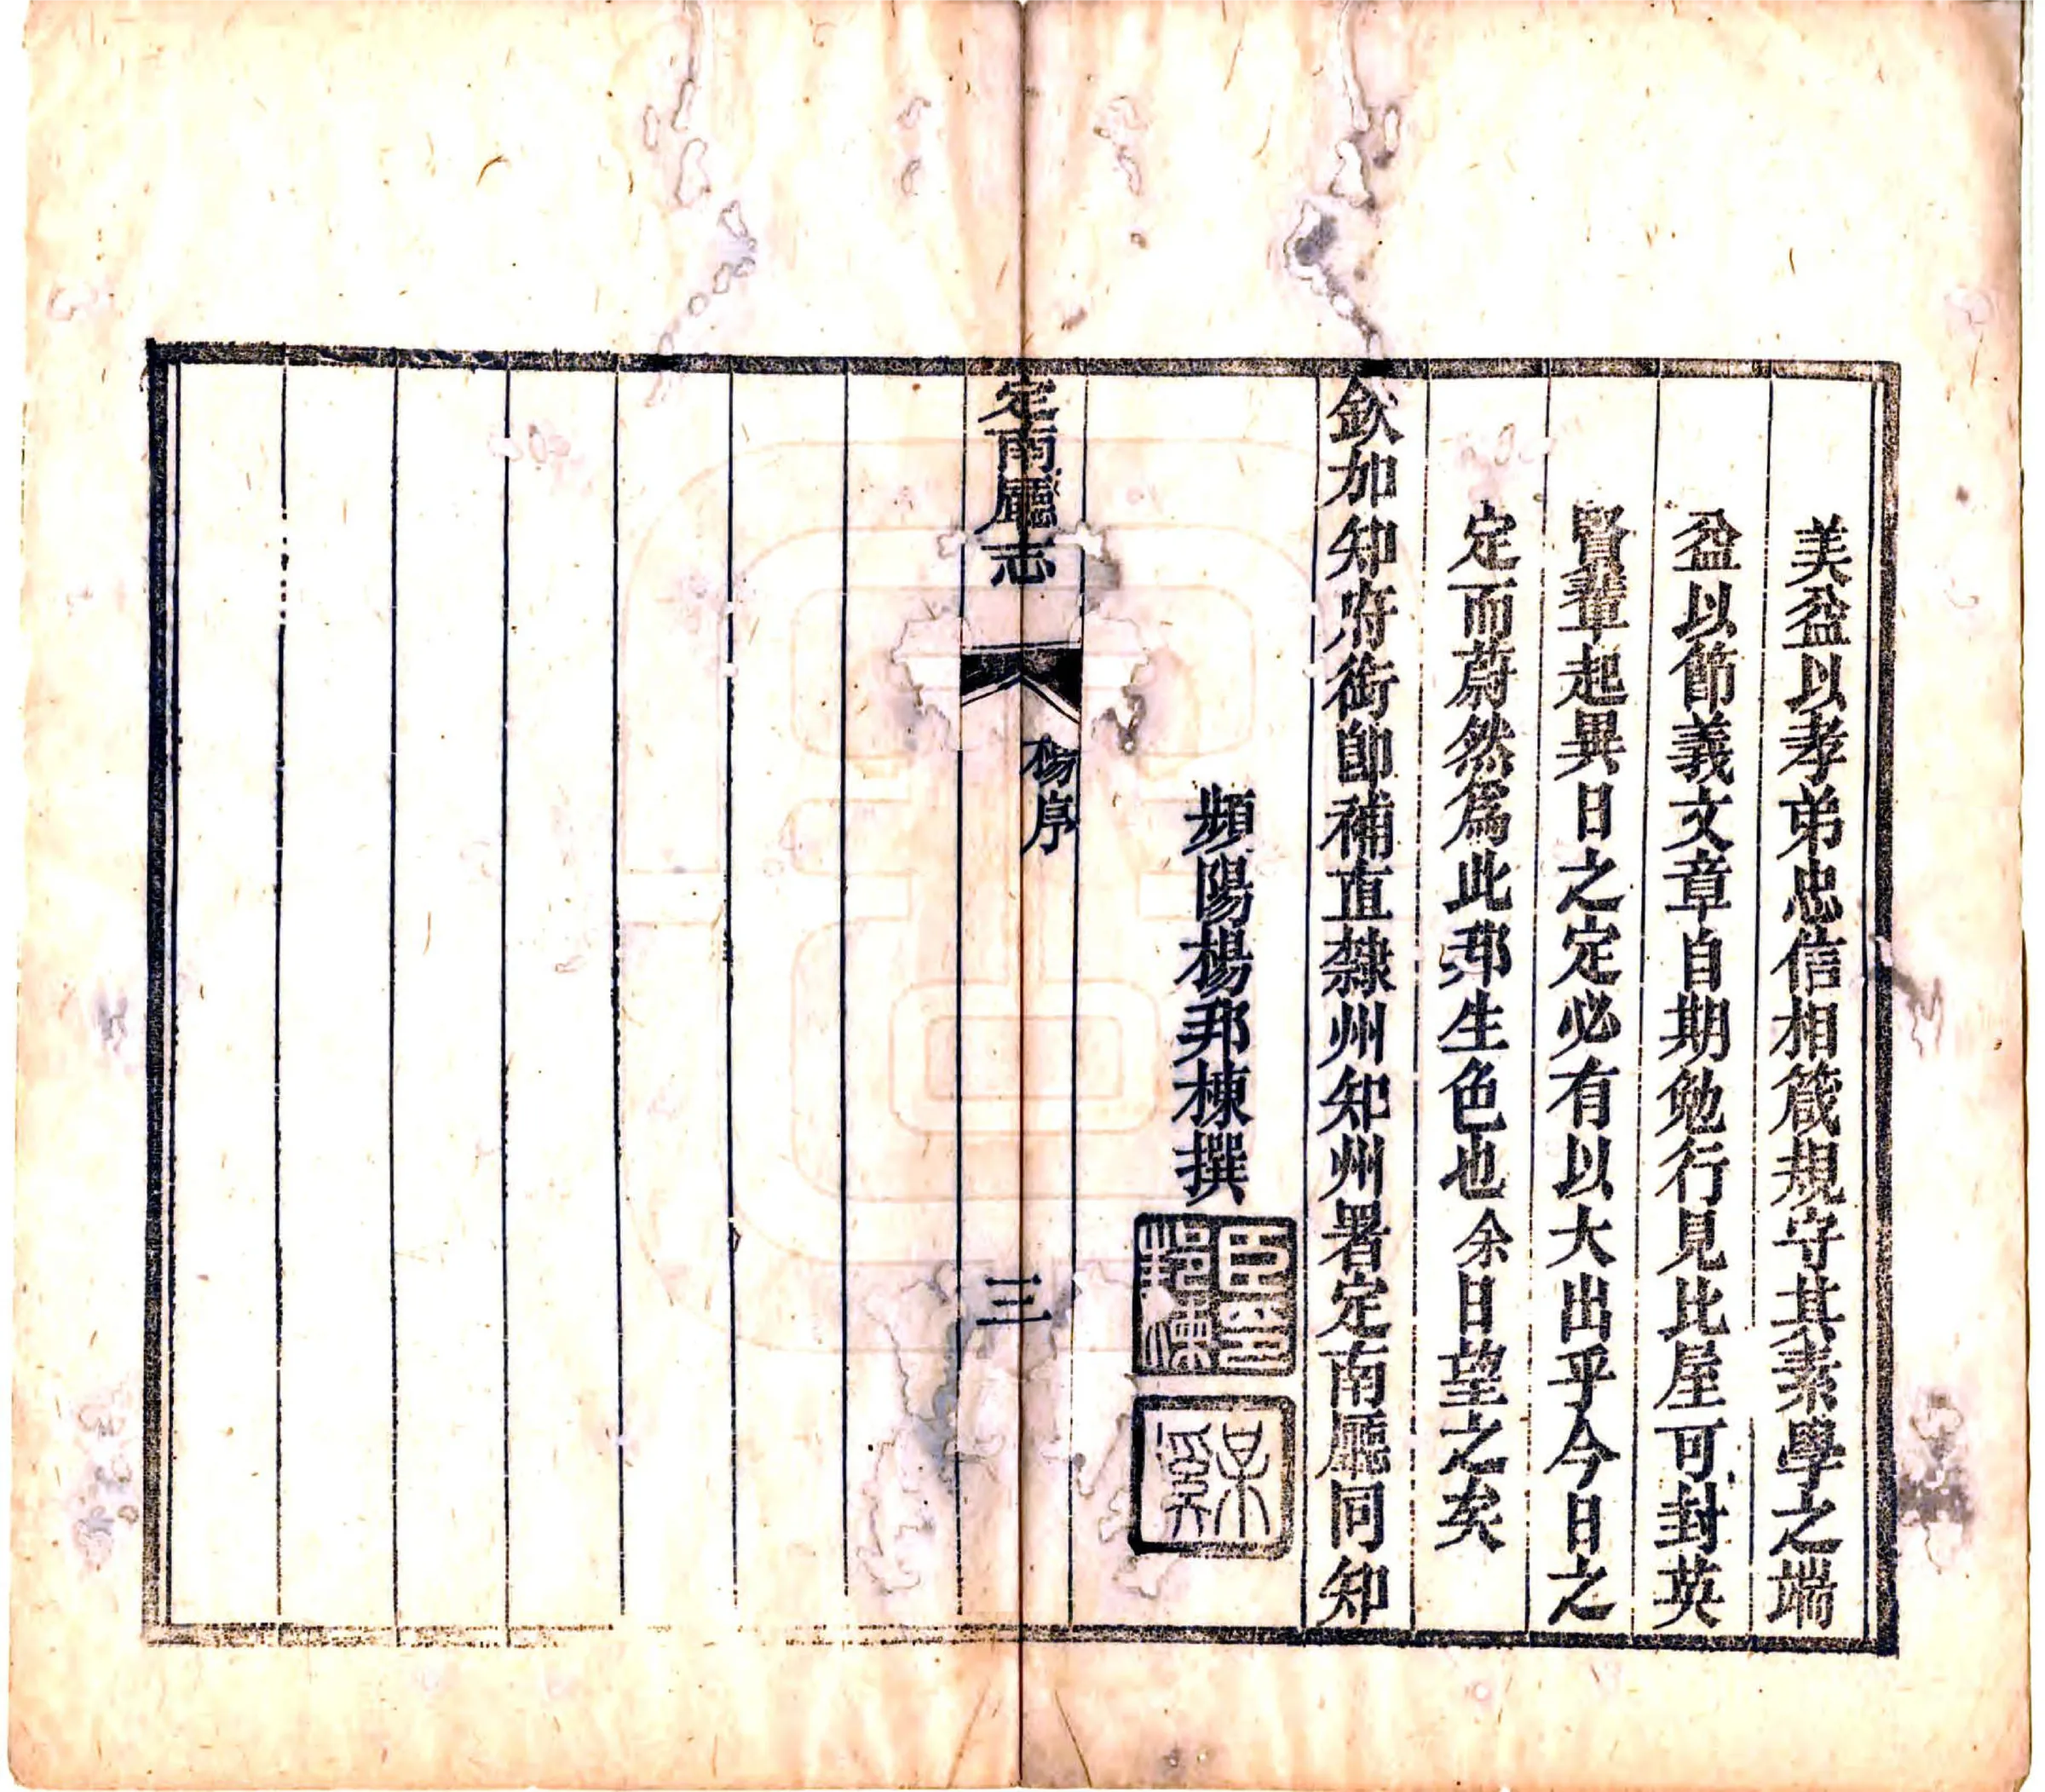 美益以孝弟忠信相箴規守其素學之端
益以節義文章自期勉行見比屋可封英
賢輩起異日之定必有以大出乎今日之
定而蔚然爲此邦生色也余日望之矣
欽加知府銜卽補直隸州知州署定南廳同知
頻陽楊邦棟撰
臣印邦棟
某溪
定南廳志
楊序
三